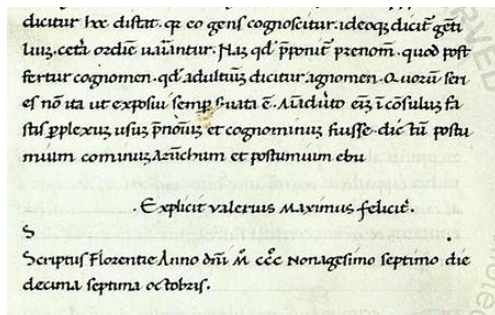 dicitur hoc distat. qr eo gens cognoscitur. ideoq; dicit̃ gẽti
liuʒ. cetã ordiẽ uaũntur. Naʒ qđ p̃ponit̃ prenom̃. quod post
fertur cognomen. qđ adultiuʒ dicitur agnomen. Quorũ seri
es nõ ita ut exposui semp seruata ẽ. Aĩaduto eĩʒ ĩ cõsuluʒ fa
stis pplexuʒ usuʒ p̃nõiuʒ et cognominuʒ fuisse. dic tũ postu
mium cominuʒ Arũchum et postumium ebu
. Explicit valerius Maximus felicit̃.
S
Scriptus Florentie Anno dñi M̃ CCC̃ Nonagesimo septimo die
decima septima octobris.